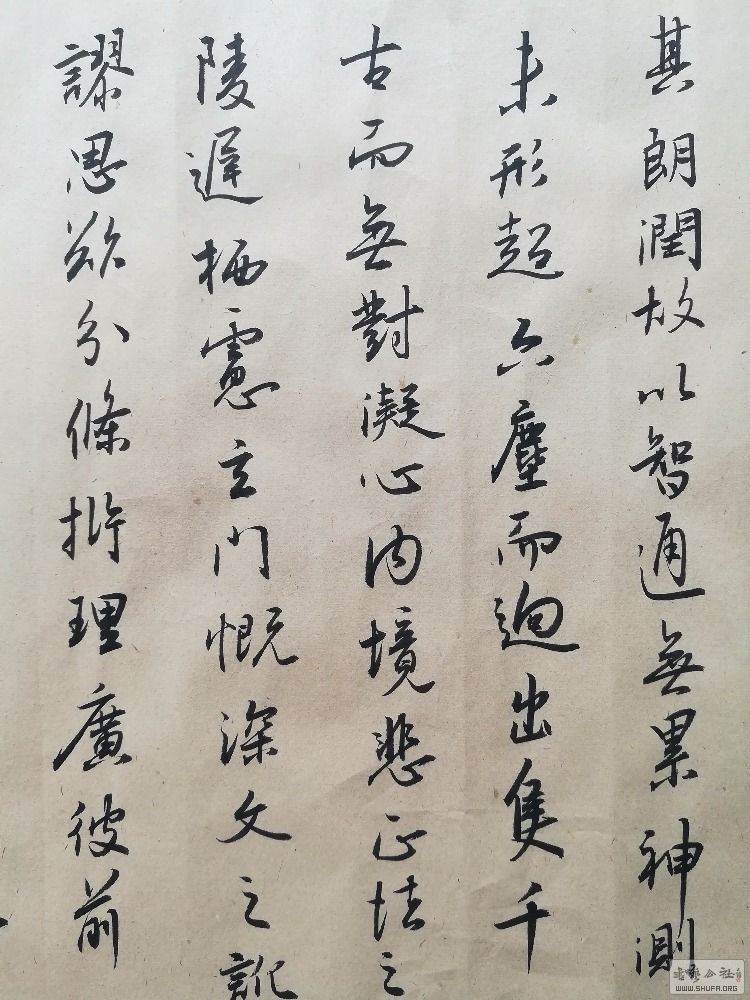 其朗潤故以智通無累神測
未形超六塵而逈出隻千
古而無對凝心內境悲正法之
陵遲栖慮玄門慨深文之訛
謬思欲分條析理廣彼前
WWW.SHUFA.ORG